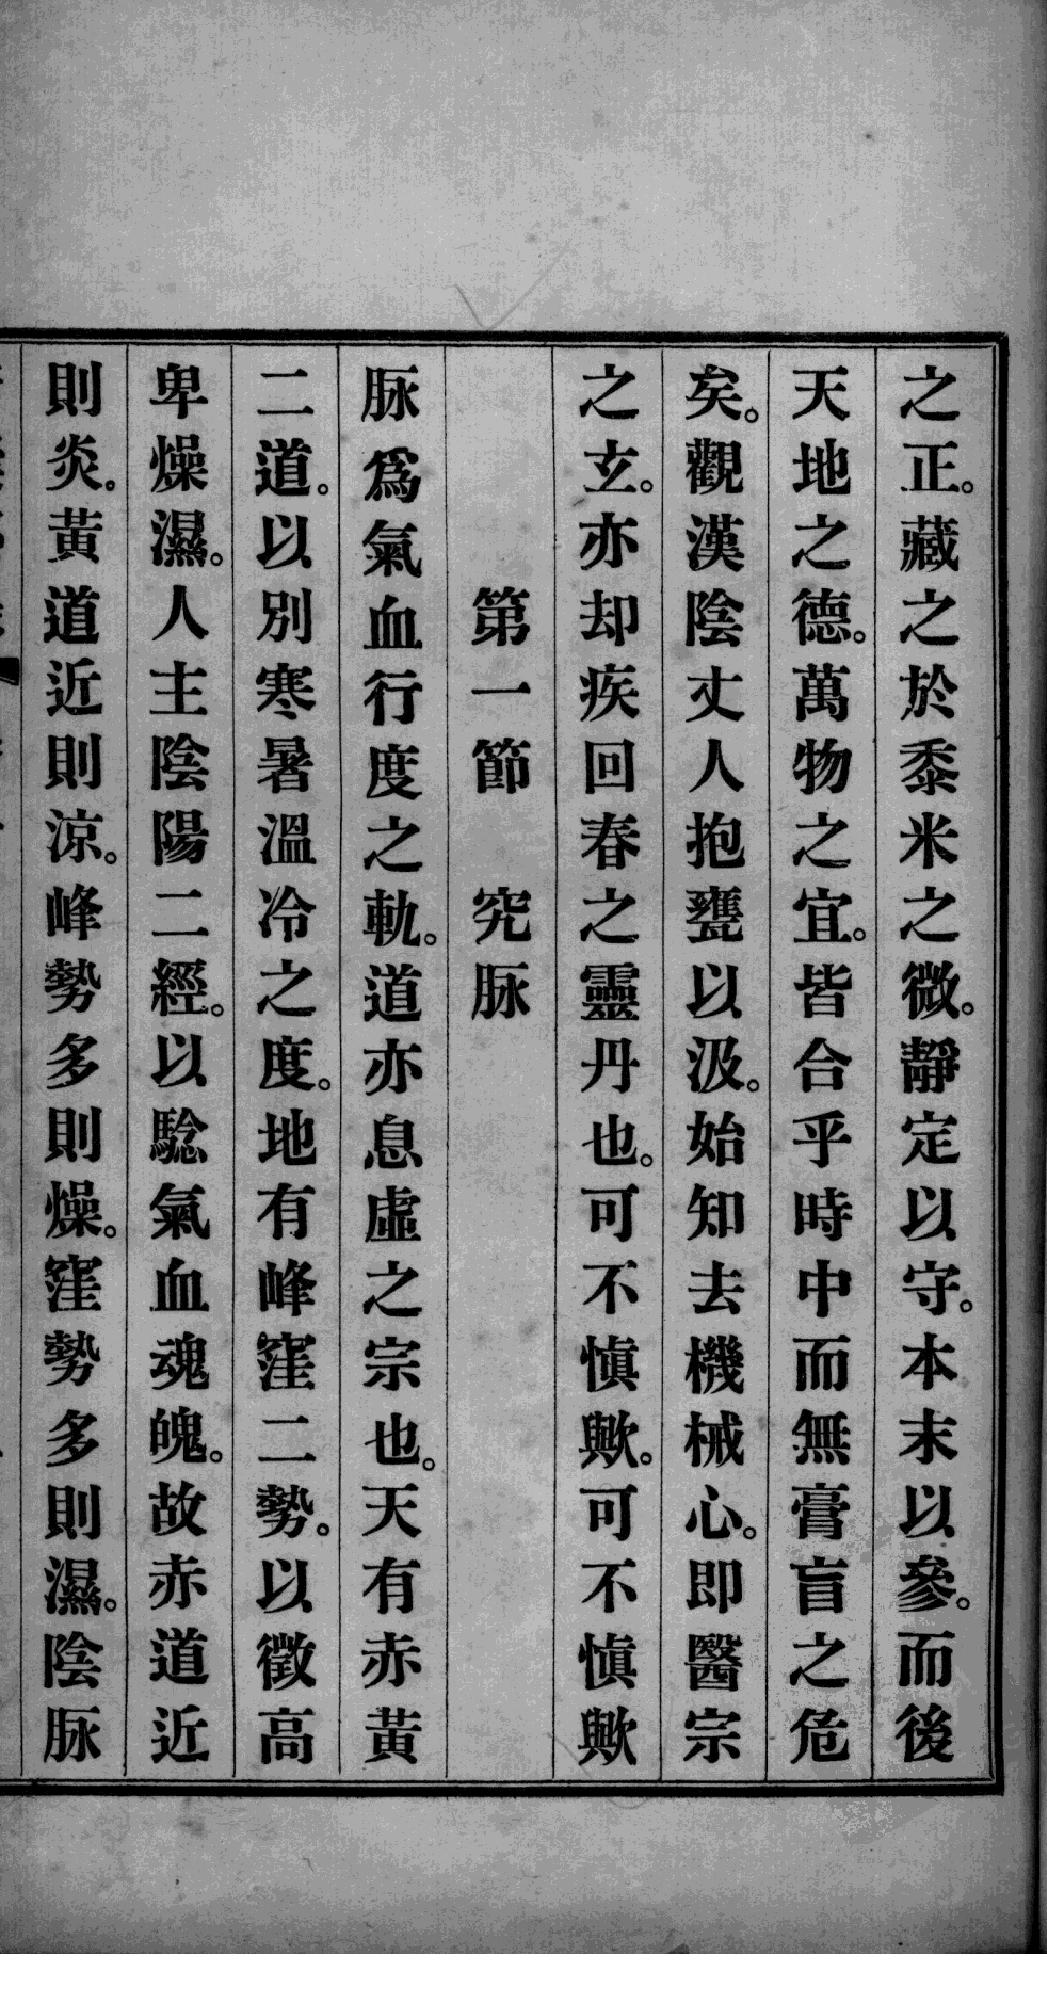 之正。藏之於黍米之微。靜定以守。本末以參。而後
天地之德。萬物之宜。皆合乎時中而無膏盲之危
矣。觀漢陰丈人抱甕以汲。始知去機械心。即醫宗
之玄。亦却疾回春之靈丹也。可不慎歟。可不慎歟
第一節 究脉
脉爲氣血行度之軌。道亦息虛之宗也。天有赤黃
二道。以別寒暑溫冷之度。地有峰窪二勢。以徵高
卑燥濕。人主陰陽二經。以騐氣血魂魄。故赤道近
則炎。黃道近則涼。峰勢多則燥。窪勢多則濕。陰脉